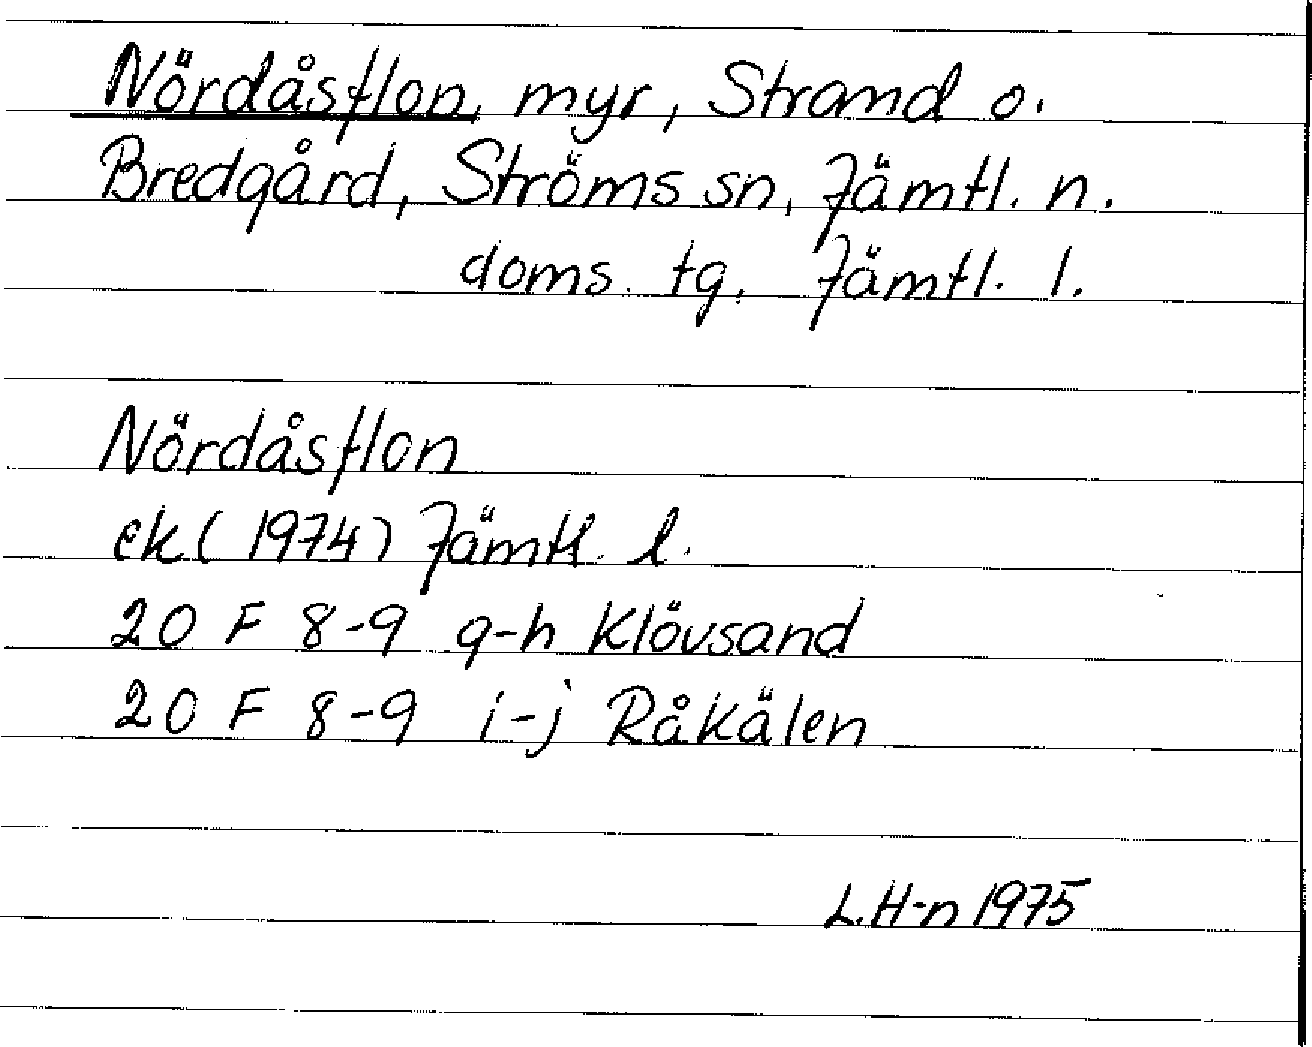 Nördåsflon, myr, Strand o.
Bredgård, Ströms sn, Jämtl. n.
doms. tg. Jämtl. l.
Nördåsflon
ek (1974) Jämtl. l.
20 F 8-9 g-h Klövsand
20 F 8-9 i-j Råkälen
L.H-n 1975